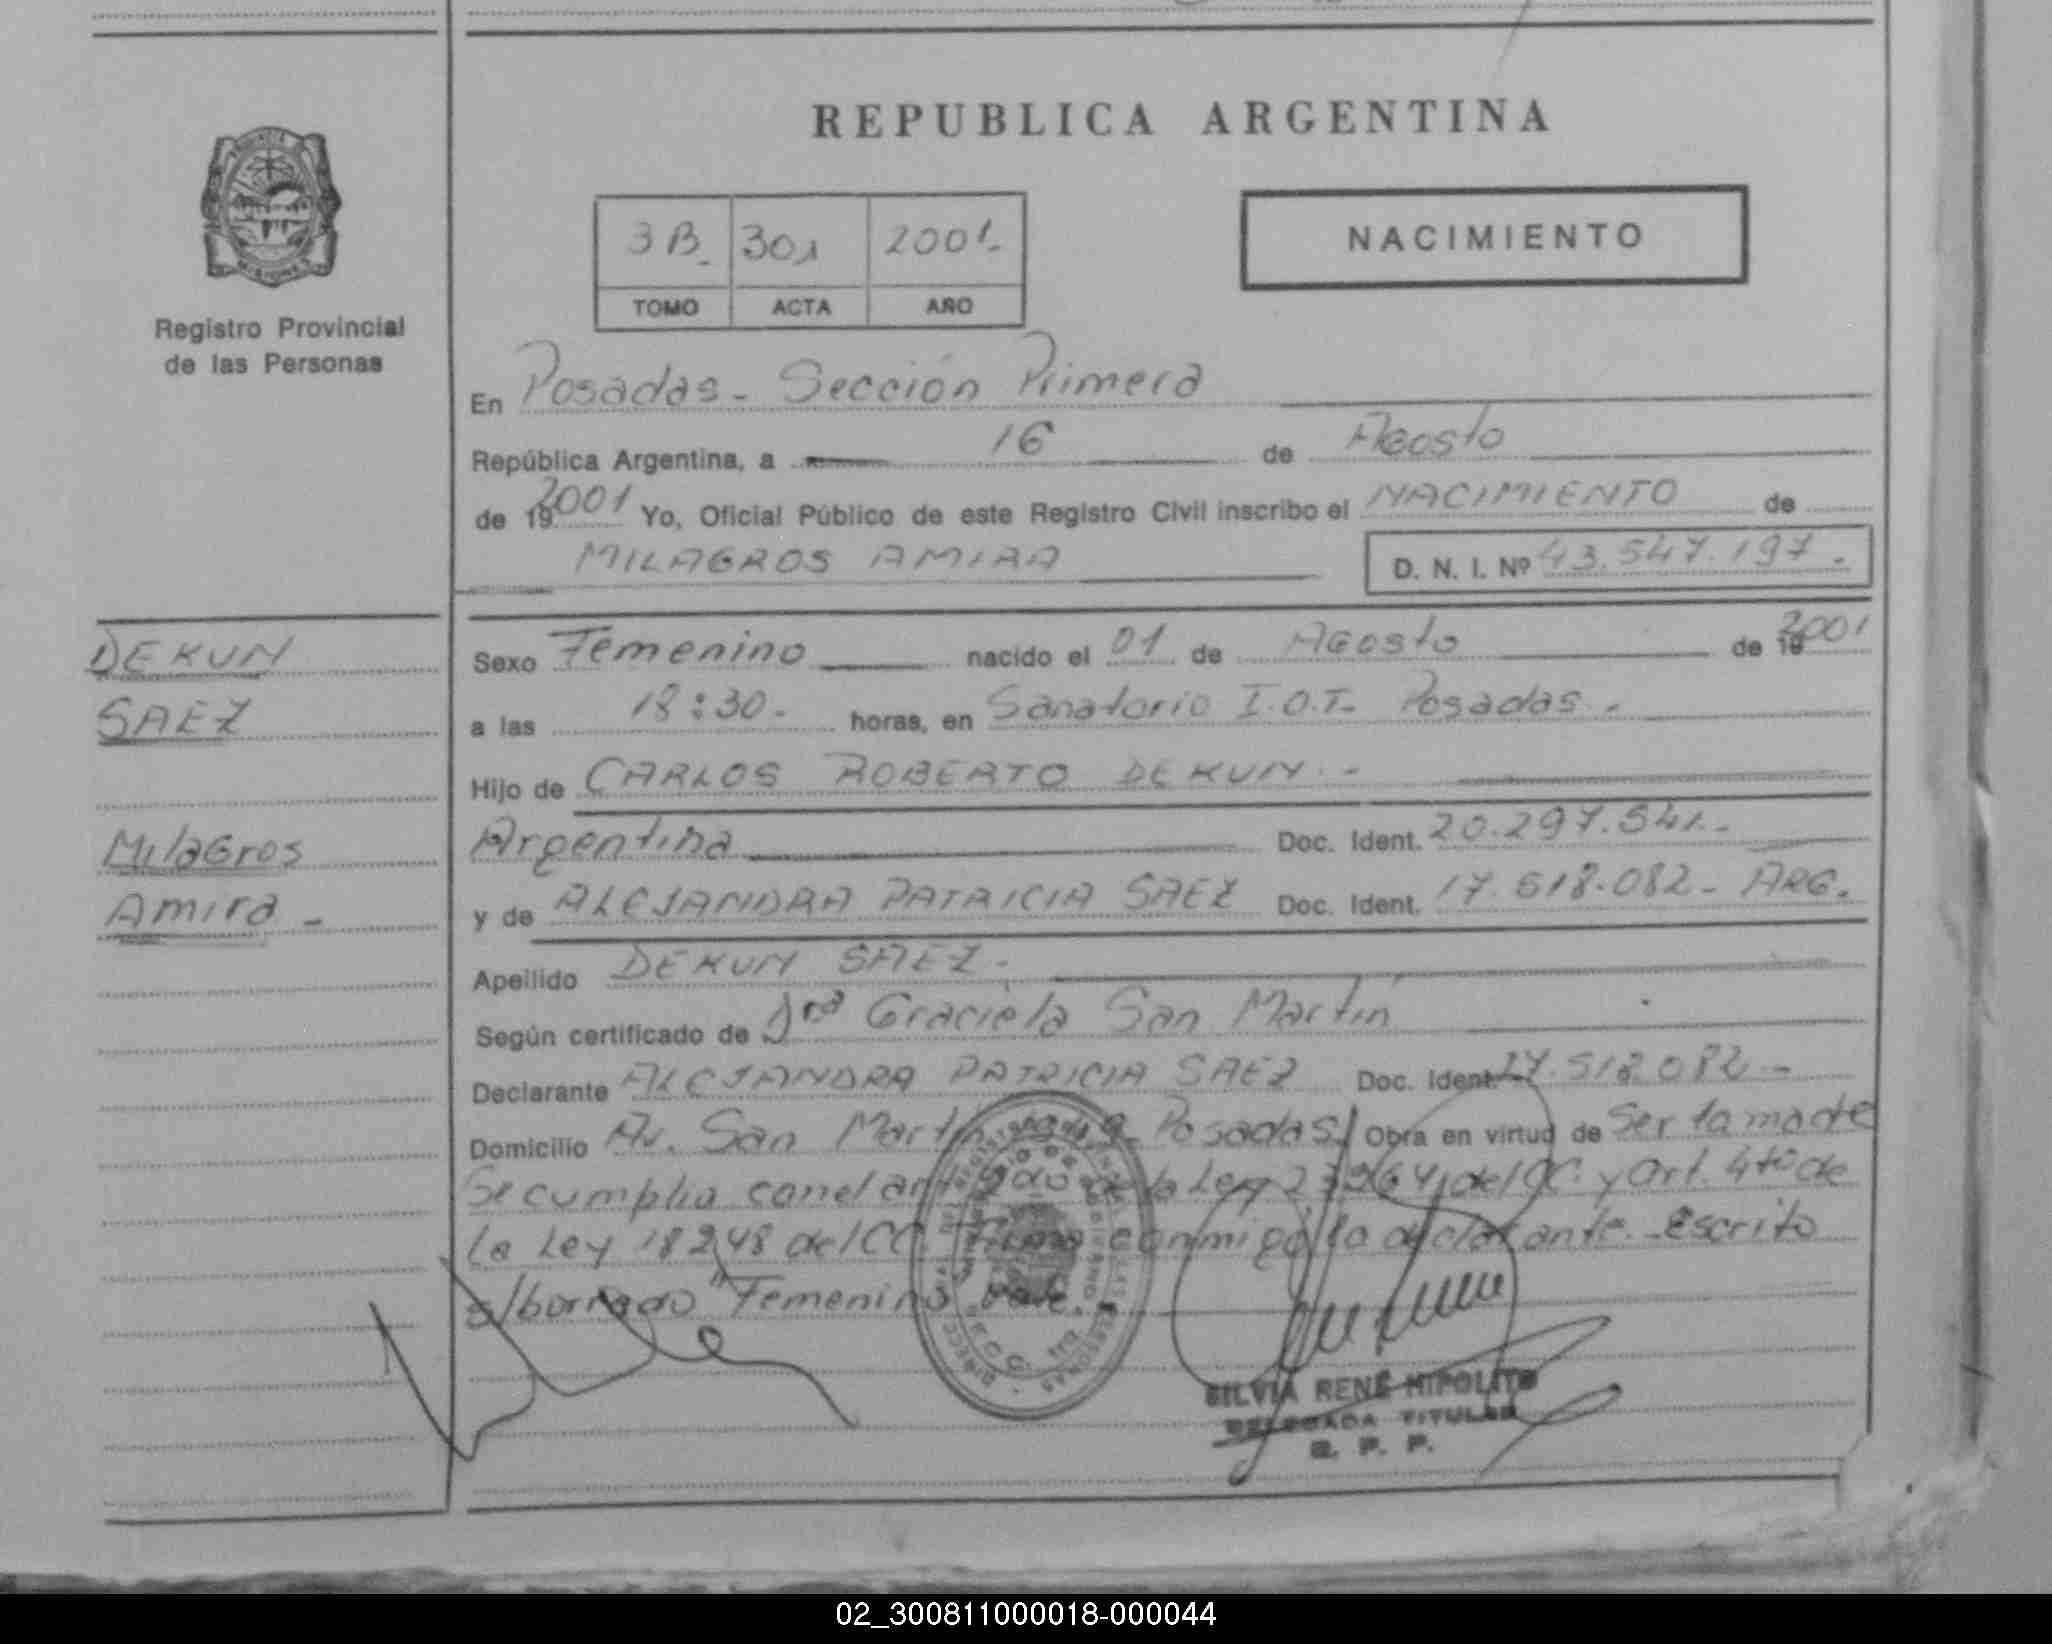 REPUBLICA ARGENTINA
3B_ 301 2001-
TOMO ACTA AÑO
NACIMIENTO
MISIONES
Registro Provincial
de las Personas
En Posadas - Sección Primera
República Argentina, a 16 de Agosto
de 19 2001 Yo, Oficial Público de este Registro Civil inscribo el NACIMIENTO de
MILAGROS AMIRA D. N. I. Nº 43.547.197.-
DEKUN
SAEZ
Milagros
Amira -
Sexo Femenino nacido el 01 de Agosto de 19 2001
a las 18:30.- horas, en Sanatorio I.O.T. Posadas.-
Hijo de CARLOS ROBERTO DEKUN.-
Argentina Doc. Ident. 20.297.541.-
y de ALEJANDRA PATRICIA SAEZ Doc. Ident. 17.518.082- ARG.
Apellido DEKUN SAEZ.
Según certificado de Dra Graciela San Martín
Declarante ALEJANDRA PATRICIA SAEZ Doc. Ident. 17.518.082-
Domicilio Av. San Martín Posadas Obra en virtud de Ser la madre
Se cumplio con el de la Ley 23264 del CC. y Art. 4to de
la Ley 18248 del CC. Firma conmigo la declarante.- Escrito
s/borrado "Femenino" Vale.
SILVIA RENÉ HIPOLITO
DELEGADA TITULAR
R. P. P.
02_300811000018-000044